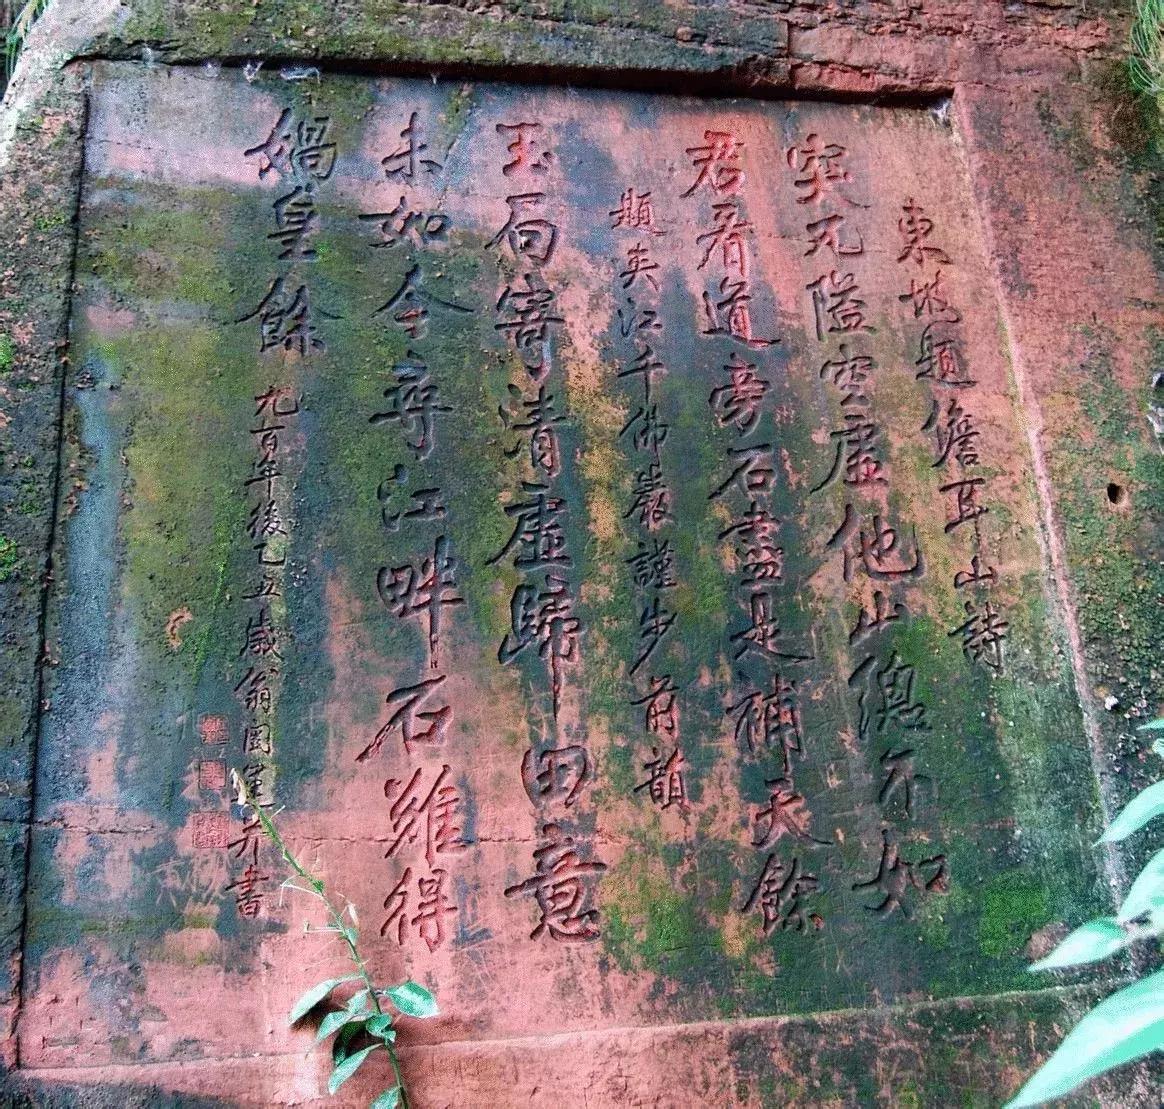 東坡題儋耳山詩
突兀隘空虛他山總不如
君看道旁石盡是補天餘
題夾江千佛巖謹步前韻
玉局寄清虛歸田意
未如今尋江畔石難得
媧皇餘
九百年後乙丑歲翁闓運并書